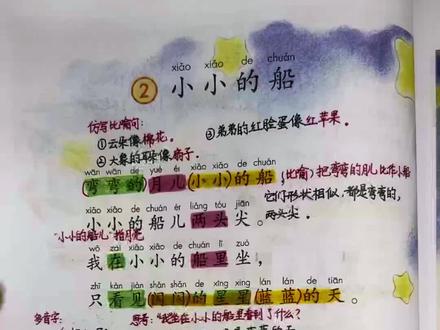 xiǎo xiǎo de chuán
2 小小的船
仿写比喻句:
①云朵像棉花。 ③弟弟的红脸蛋像红苹果。
②大象的耳朵像扇子。
wān wān de yuè ér xiǎo xiǎo de chuán
(弯弯的)月儿(小小)的船, (比喻)把弯弯的月儿比作小船
它们形状相似,都是弯弯的,
两头尖。
xiǎo xiǎo de chuán ér liǎng tóu jiān
小小的船儿两头尖。
"小小的船儿"指月儿
wǒ zài xiǎo xiǎo de chuán lǐ zuò
我在小小的船里坐,
zhǐ kàn jiàn shǎn shǎn de xīng xing lán lán de tiān
只看见(闪闪)的星星(蓝蓝)的天。
多音字: 思考:"我坐在小小的船里看到了什么?